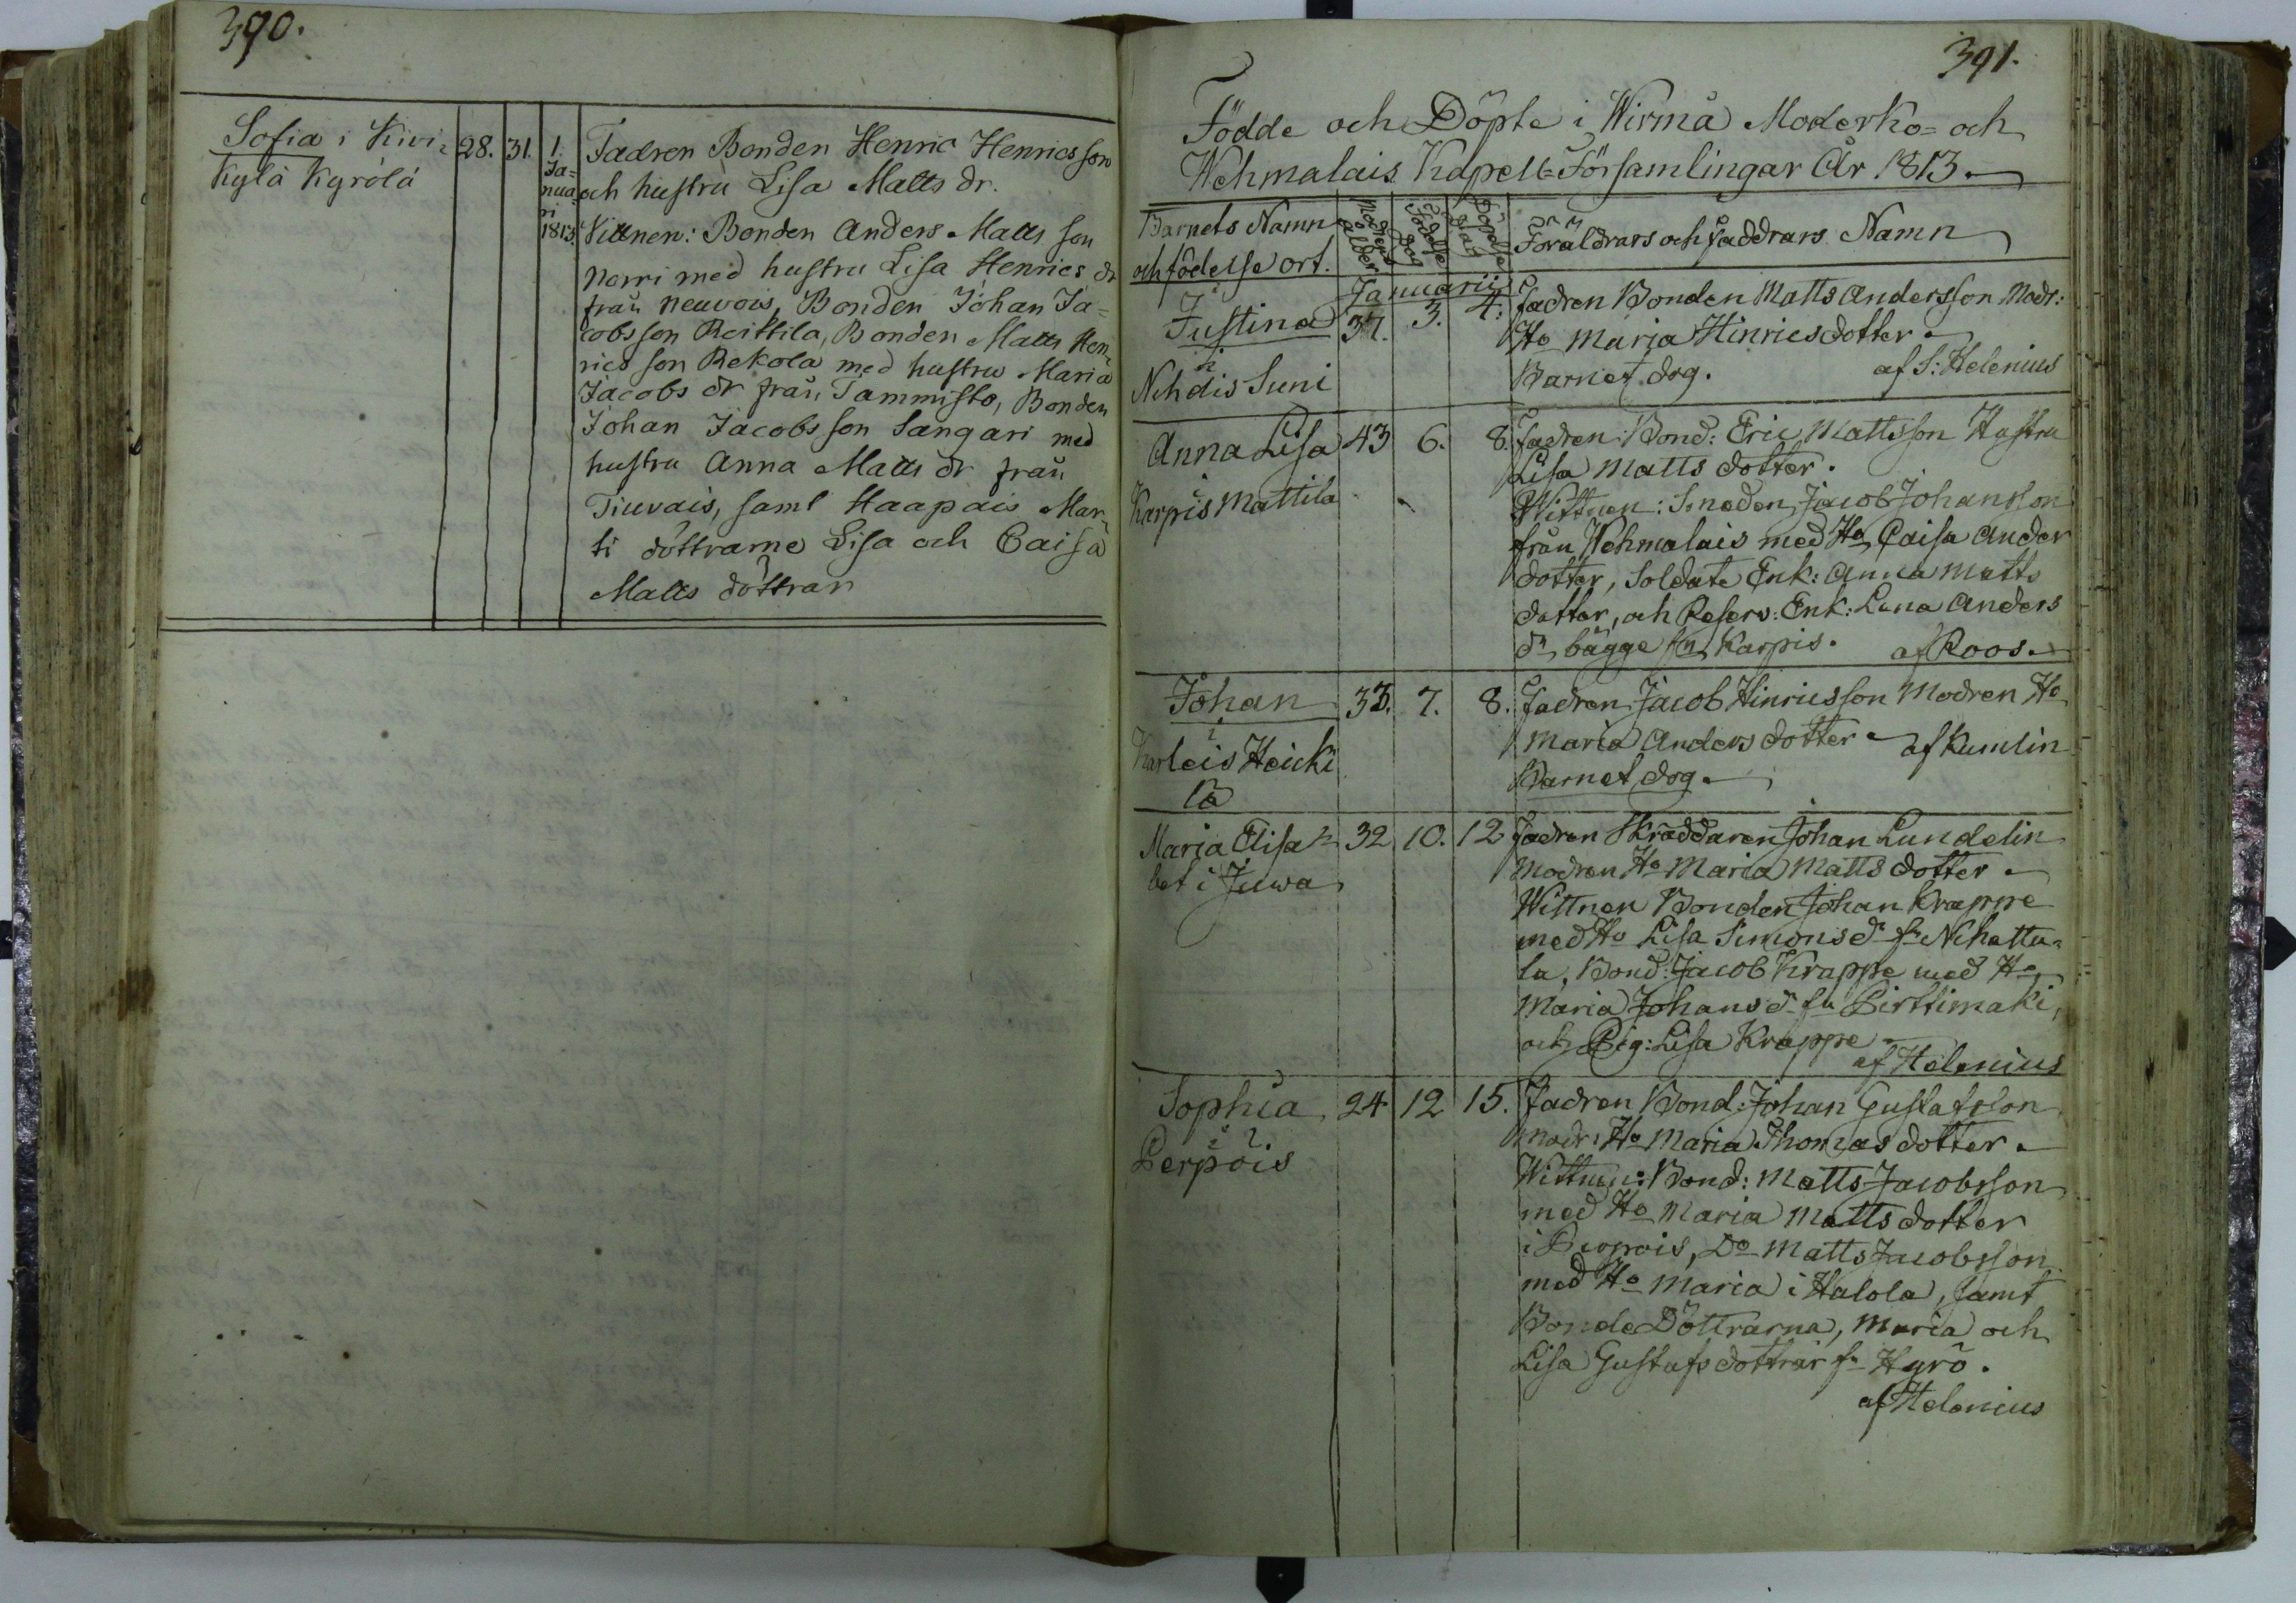 390.
Sofia i Kivi=
kylä Kyrölä
28. 31. 1.
Ja=
nua
ri
1813.
Fadren Bonden Henric Henricsson
och hustru Lisa Matts dr.
Vittnen: Bonden Anders Matts son
Norri med hustru Lisa Henrics dr
från Neuvois, Bonden Johan Ja=
cobsson Reittila, Bonden Matts Hen=
rics son Rekola med hustru Maria
Jacobs dr från Tammisto, Bonden
Johan Jacobs son Sangari med
hustru Anna Matts dr från
Tiuvais, samt Haapais Mar=
ti döttrarne Lisa och Caisa
Matts döttrar
391.
Födde och Döpte i Wirmå Moderko- och
Wehmalais Kapell-Församlingar År 1813.
Barnets Namn
och födelse ort.
Modrens
ålder
Födelse
dag
Döpelse
dag
Föräldrars och Faddrars Namn
Januarii
Justina 37. 3. 4. Fadren Bonden Matts Andersson Modr:
Ho Maria Hinricsdotter
i
Nihdis Suni
Barnet dog. af S: Helenius
Anna Lisa 43 6. 8. Fadren Bond: Eric Mattsson Hustru
Lisa Matts dotter.
i
Karpis Mattila
Wittnen: Smeden Jacob Johansson
från Wehmalais med Ho Caisa Anders
dotter, Soldate Enk: Anna Matts
dotter, och Reserv: Enk: Lena Anders
dr bägge fn Karpis. af Roos.
Johan 33. 7. 8. Fadren Jacob Hinricsson Modren Ho
i
Maria Anders dotter af Kumlin
Karleis Heicki
lä
Barnet dog.
Maria Elisa= 32 10. 12 Fadren Skräddaren Johan Lundelin
bet i Juwa
Modren Ho Maria Matts dotter
Wittnen Bonden Johan Krappe
med Ho Lisa Simons dr fn Nihattu=
la, Bond: Jacob Krappe med Ho
Maria Johans dr fn Pirttimäki,
och Pig: Lisa Krappe
af Helenius
Sophia 24 12 15. Fadren Bond: Johan Gustafsson
i
Perpöis
Modr: Ho Maria Thomas dotter
Wittnen: Bond: Matts Jacobsson
med Ho Maria Matts dotter
i Perpöis, Do Matts Jacobsson
med Ho Maria i Halola, samt
Bonde Döttrarna, Maria och
Lisa Gustafs döttrar fn Hyrö.
af Helenius